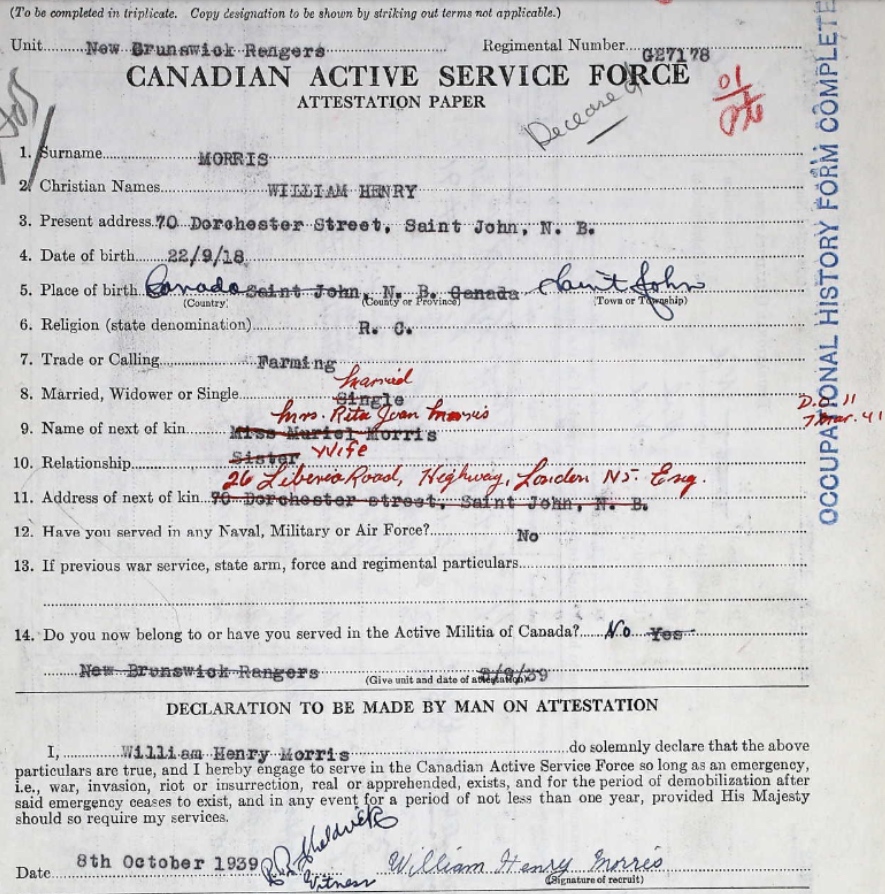 (To be completed in triplicate. Copy designation to be shown by striking out terms not applicable.)
Unit New Brunswick Rangers Regimental Number G27178
CANADIAN ACTIVE SERVICE FORCE
ATTESTATION PAPER
Deceased
01
1. Surname MORRIS
2. Christian Names WILLIAM HENRY
3. Present address 70 Dorchester Street, Saint John, N. B.
4. Date of birth 22/9/18
5. Place of birth Canada Saint John, N. B. Canada Saint John
(Country) (County or Province) (Town or Township)
6. Religion (state denomination) R. C.
7. Trade or Calling Farming
married
8. Married, Widower or Single Single
Mrs. Rita Joan Morris
9. Name of next of kin Miss Muriel Morris
10. Relationship Sister Wife
26 Liberia Road, Highway, London N5. Eng.
11. Address of next of kin 70 Dorchester street, Saint John, N. B.
12. Have you served in any Naval, Military or Air Force? No
13. If previous war service, state arm, force and regimental particulars
14. Do you now belong to or have you served in the Active Militia of Canada? No Yes
New Brunswick Rangers (Give unit and date of attestation) /9/39
DECLARATION TO BE MADE BY MAN ON ATTESTATION
I, William Henry Morris do solemnly declare that the above
particulars are true, and I hereby engage to serve in the Canadian Active Service Force so long as an emergency,
i.e., war, invasion, riot or insurrection, real or apprehended, exists, and for the period of demobilization after
said emergency ceases to exist, and in any event for a period of not less than one year, provided His Majesty
should so require my services.
Date 8th October 1939 Witness William Henry Morris
(Signature of recruit)
OCCUPATIONAL HISTORY FORM COMPLETE
D.O. 11
7 Mar. 41